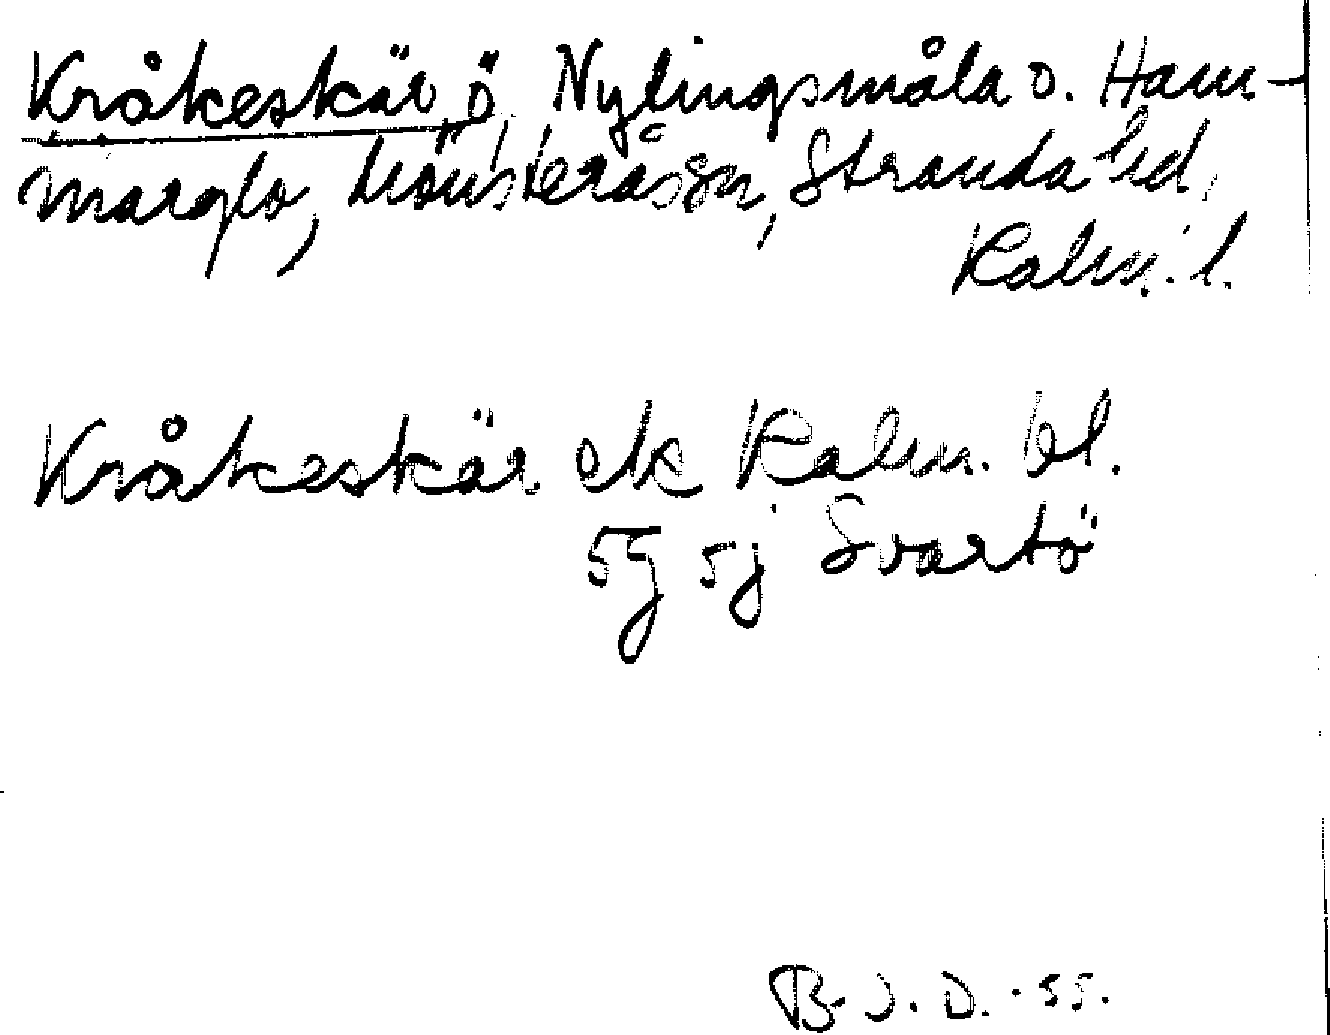 Kråkeskär, ö, Nylingsmåla o. Ham-
marglo, Mönsterås sn, Stranda hd,
Kalm. l.
Kråkeskär ek Kalm. bl.
5g 5j Svartö
B. J. D. -55.